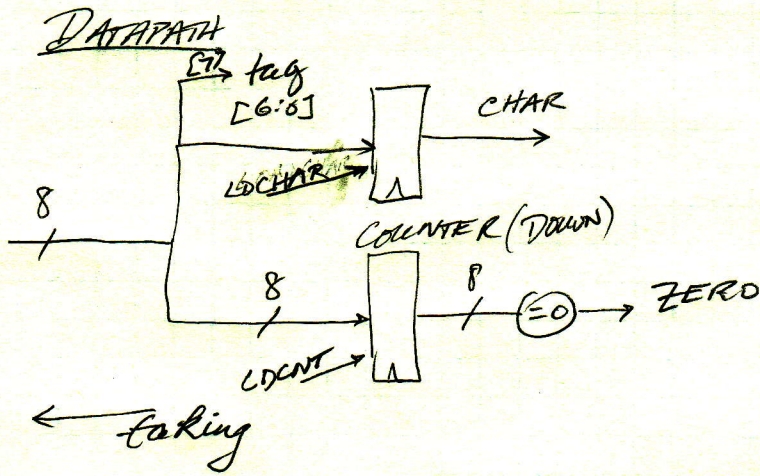 DATAPATH
[7] tag
[6:0]
CHAR
LDCHAR
8
COUNTER (DOWN)
8
8
=0
ZERO
LDCNT
taking